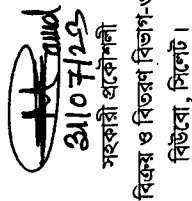 31/07/23
সহকারী প্রকৌশলী
বিক্রয় ও বিতরণ বিভাগ-
বিউবো, সিলেট।